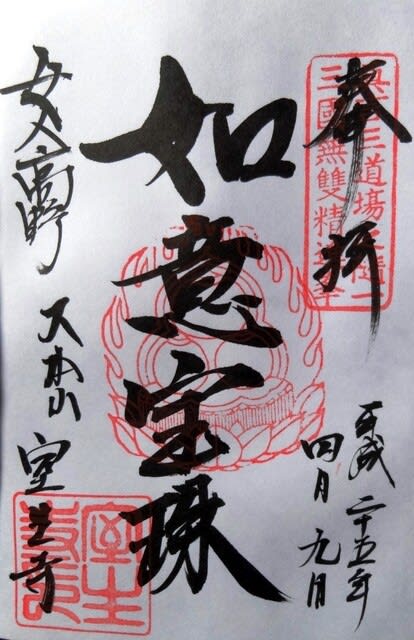 奉拝
真言三道場之隨一
三國無雙精進
平成二十五年
四月九日
如意宝珠
女人高野
大本山 室生寺
室生